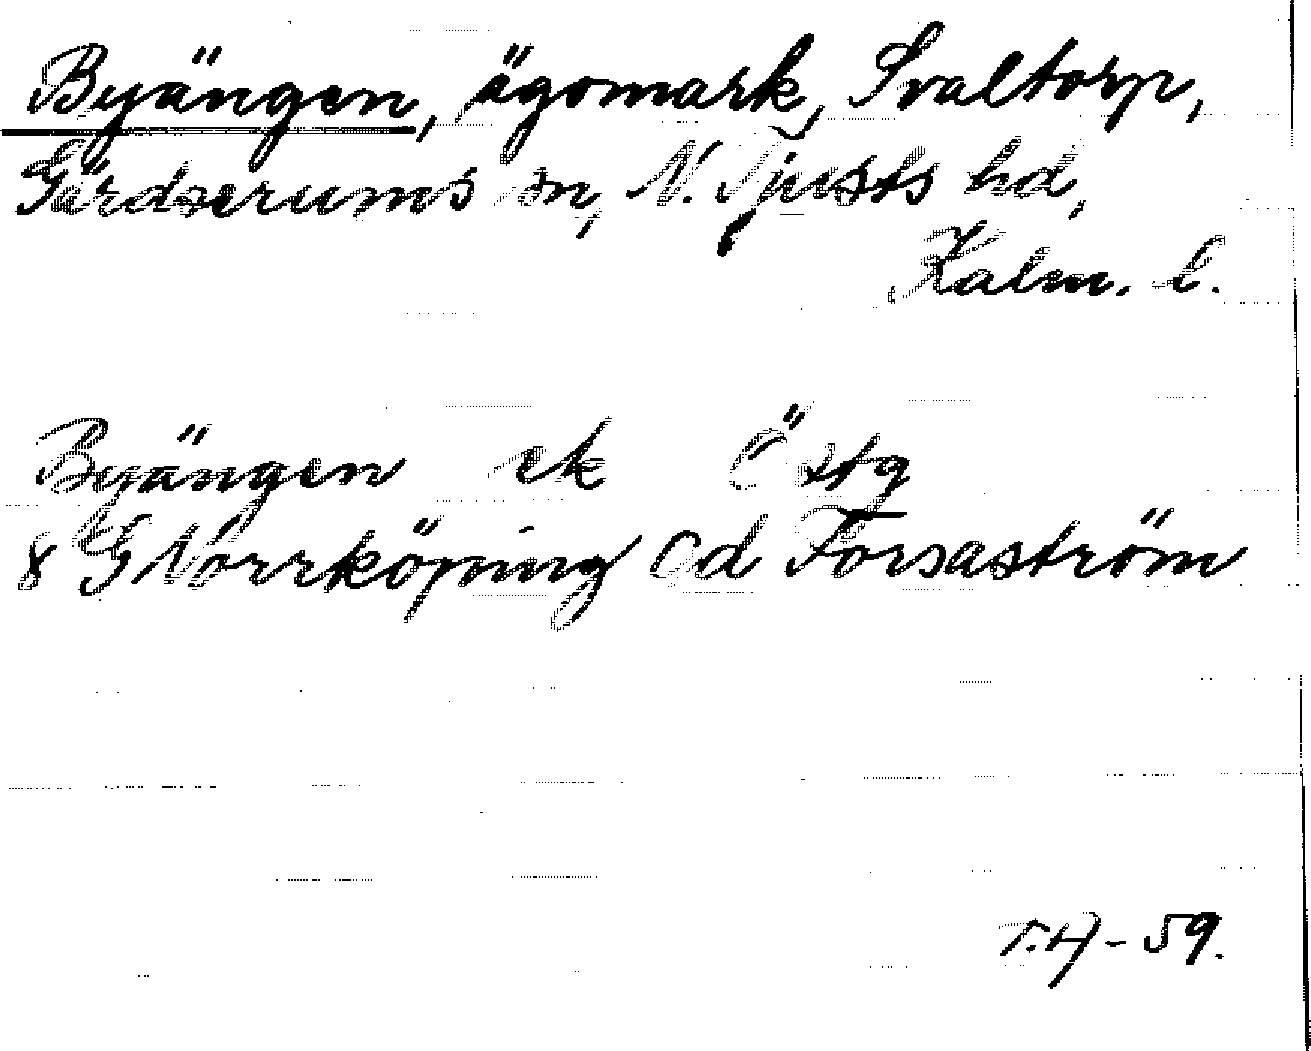 Byängen, ägomark, Svaltorp,
Gärdserums sn, N. Tjusts hd,
Kalm. l.
Byängen ek Östg
8 G Norrköping Od Forsaström
T.H - 59.